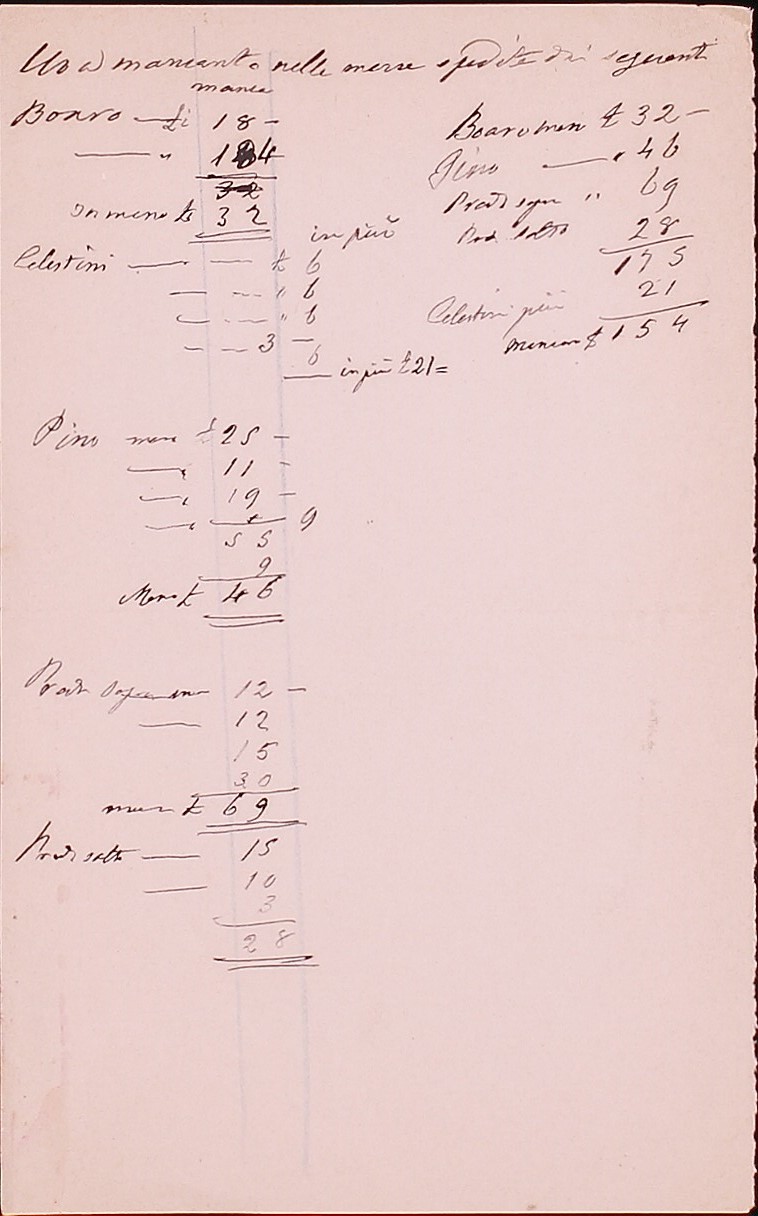 Uva mancanto nelle merse spedite dai seguenti
manca
Boaro — £i 18 –
— " 184
32
In meno £ 32
in più
Celestini — — £ 6
— — " 6
— — " 6
— — 3 — 6
— in più £ 21 =
Pino meno £ 25 –
— " 11 –
— " 19 –
— " 9
55
9
Meno £ 46
Prati sopra meno 12 –
— 12
15
30
meno £ 69
Prati sotto — 15
— 10
3
28
Boaro meno £ 32 –
Pino — " 46
Prati sopra " 69
Prati sotto 28
175
Celestini più 21
Mancan £ 154